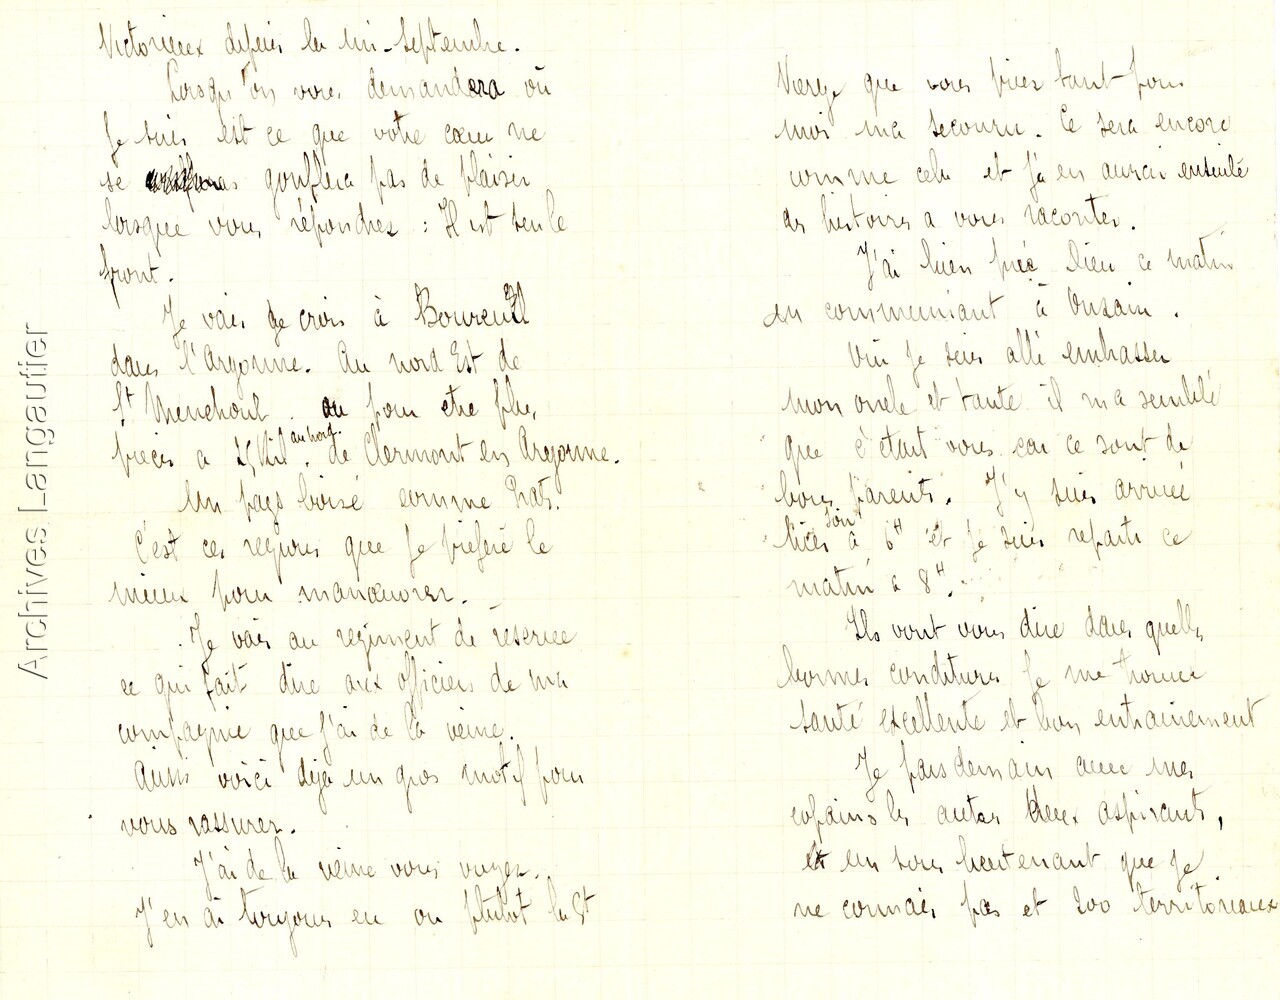 Victorieux depuis la mi-septembre.
Lorsqu'on vous demandera où
je suis est ce que votre cœur ne
se gonflera pas de plaisir
lorsque vous répondrez : Il est sur le
front.
Je vais je crois à Boureuil
dans l'Argonne. Au nord Est de
St Menehoul. ou pour etre plus
précis a 15 Kil. au nord de Clermont en Argonne.
Un pays boisé comme Prats.
C'est ces regions que je préfère le
mieux pour manœuvrer.
Je vais au regiment de réserve
ce qui fait dire aux officiers de ma
compagnie que j'ai de la veine.
Aussi voici déja un gros motif pour
vous rassurer.
J'ai de la veine vous voyez.
J'en ai toujours eu ou plutot la St
Vierge que vous priez tant pour
moi ma secouru. Ce sera encore
comme cela et j'en aurai ensuite
des histoires a vous raconter.
J'ai bien prié Dieu ce matin
en communiant à
Oui je suis allé embasser
mon oncle et tante il m'a semblé
que c'était vous car ce sont de
bons parents. J'y suis arrivé
hier soir à 6H et je suis reparti ce
matin a 8H.
Ils vont vous dire dans quelles
bonnes conditions je me trouve
santé excellente et bon entrainement
Je pars demain avec mes
copains les autres deux aspirants,
et un sous lieutenant que je
ne connais pas et 200 territoriaux
Archives Langautier